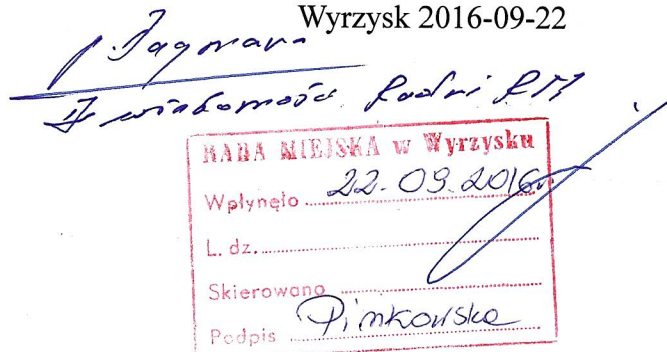 Wyrzysk 2016-09-22
p. Dagmara
Do wiadomości Radni RM
RADA MIEJSKA w Wyrzysku
Wpłynęło 22.09.2016r
L. dz.
Skierowano
Podpis Pinkowska